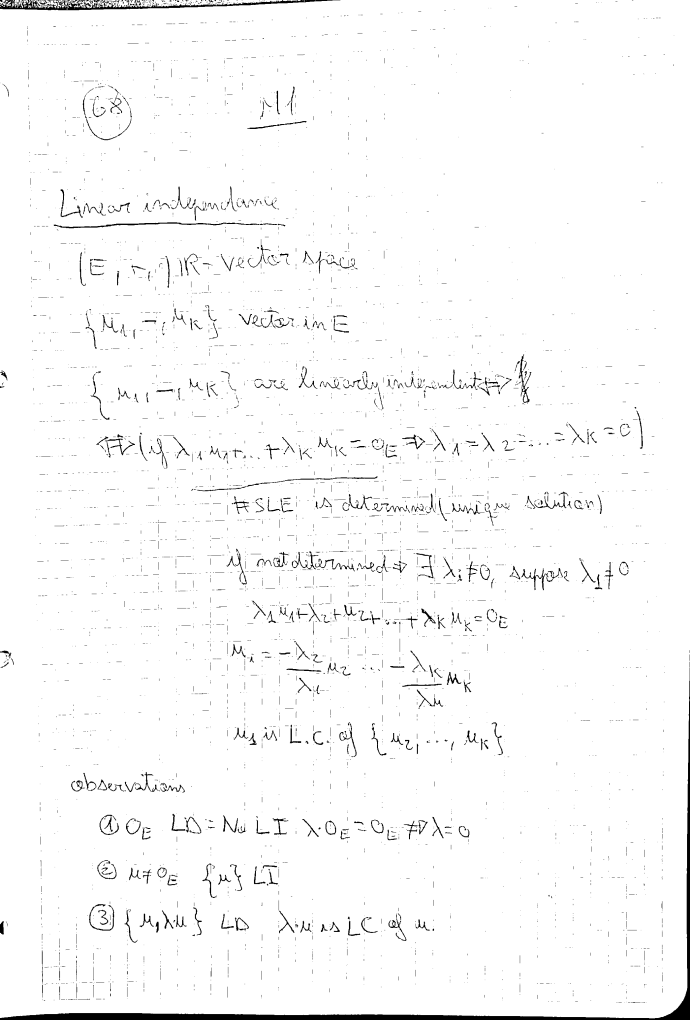 68 M1
Linear independance
(E, +, ·) IR-vector space
{u1, -, uK} vector in E
{u1, -, uK} are linearly independent <=>
<=> (if λ1u1+...+λK uK = 0E => λ1 = λ2 = ... = λK = 0)
SLE is determined (unique solution)
if not determined => ∃ λi ≠ 0, suppose λ1 ≠ 0
λ1u1+λ2+u2+...+λK uK = 0E
u1 = -λ2/λ1 u2 ... -λK/λu uK
u1 is L.C. of {u2, ..., uK}
observations
① 0E LD = No LI λ·0E = 0E ≠> λ = 0
② u ≠ 0E {u} LI
③ {u, λu} LD λ·u is LC of u.